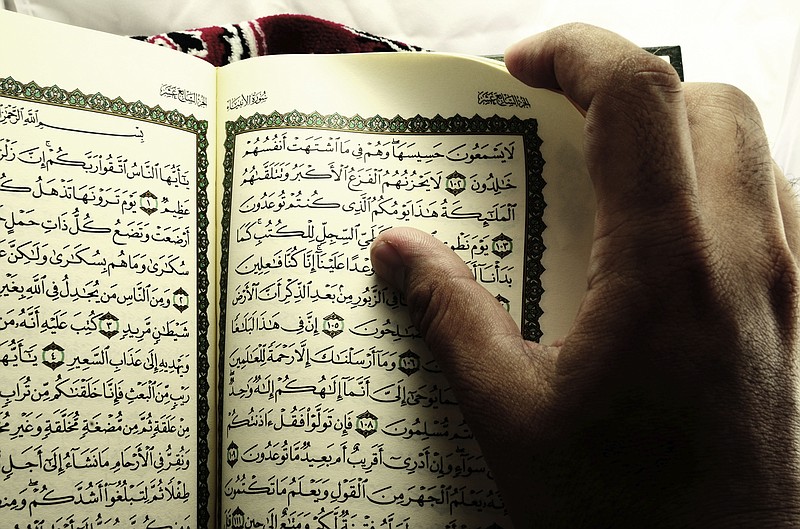 الجزء السابع عشر
سورة الأنبياء
لَا يَسْمَعُونَ حَسِيسَهَا وَهُمْ فِي مَا ٱشْتَهَتْ أَنفُسُهُمْ
خَٰلِدُونَ ١٠٢ لَا يَحْزُنُهُمُ ٱلْفَزَعُ ٱلْأَكْبَرُ وَتَتَلَقَّىٰهُمُ
ٱلْمَلَٰٓئِكَةُ هَٰذَا يَوْمُكُمُ ٱلَّذِي كُنتُمْ تُوعَدُونَ
١٠٣ يَوْمَ ٱلسِّجِلِّ لِلْكُتُبِ كَمَا
بَدَأْنَآ عَلَيْنَآ إِنَّا كُنَّا فَٰعِلِينَ
فِي ٱلزَّبُورِ مِنۢ بَعْدِ ٱلذِّكْرِ أَنَّ ٱلْأَرْضَ
١٠٥ إِنَّ فِي هَٰذَا لَبَلَٰغًا
١٠٦ وَمَآ أَرْسَلْنَٰكَ إِلَّا رَحْمَةً لِّلْعَٰلَمِينَ
يُوحَىٰٓ إِلَيَّ أَنَّمَآ إِلَٰهُكُمْ إِلَٰهٌ وَٰحِدٌ
مُّسْلِمُونَ ١٠٨ فَإِن تَوَلَّوْا۟ فَقُلْ ءَاذَنتُكُمْ
سَوَآءٍ وَإِنْ أَدْرِيٓ أَقَرِيبٌ أَم بَعِيدٌ مَّا تُوعَدُونَ
يَعْلَمُ ٱلْجَهْرَ مِنَ ٱلْقَوْلِ وَيَعْلَمُ مَا تَكْتُمُونَ
لَكُمْ وَمَتَٰعٌ إِلَىٰ حِينٍ
الجزء السابع عشر
بِسْمِ ٱللَّهِ ٱلرَّحْمَٰنِ
يَٰٓأَيُّهَا ٱلنَّاسُ ٱتَّقُوا۟ رَبَّكُمْ إِنَّ
عَظِيمٌ ١ يَوْمَ تَرَوْنَهَا تَذْهَلُ
أَرْضَعَتْ وَتَضَعُ كُلُّ ذَاتِ حَمْلٍ
سُكَٰرَىٰ وَمَا هُم بِسُكَٰرَىٰ وَلَٰكِنَّ
٢ وَمِنَ ٱلنَّاسِ مَن يُجَٰدِلُ فِي ٱللَّهِ بِغَيْرِ
شَيْطَٰنٍ مَّرِيدٍ ٣ كُتِبَ عَلَيْهِ أَنَّهُۥ مَن
وَيَهْدِيهِ إِلَىٰ عَذَابِ ٱلسَّعِيرِ ٤ يَٰٓأَيُّهَا
رَيْبٍ مِّنَ ٱلْبَعْثِ فَإِنَّا خَلَقْنَٰكُم مِّن تُرَابٍ
مِنْ عَلَقَةٍ ثُمَّ مِن مُّضْغَةٍ مُّخَلَّقَةٍ وَغَيْرِ
وَنُقِرُّ فِي ٱلْأَرْحَامِ مَا نَشَآءُ إِلَىٰٓ أَجَلٍ
طِفْلًا ثُمَّ لِتَبْلُغُوٓا۟ أَشُدَّكُمْ